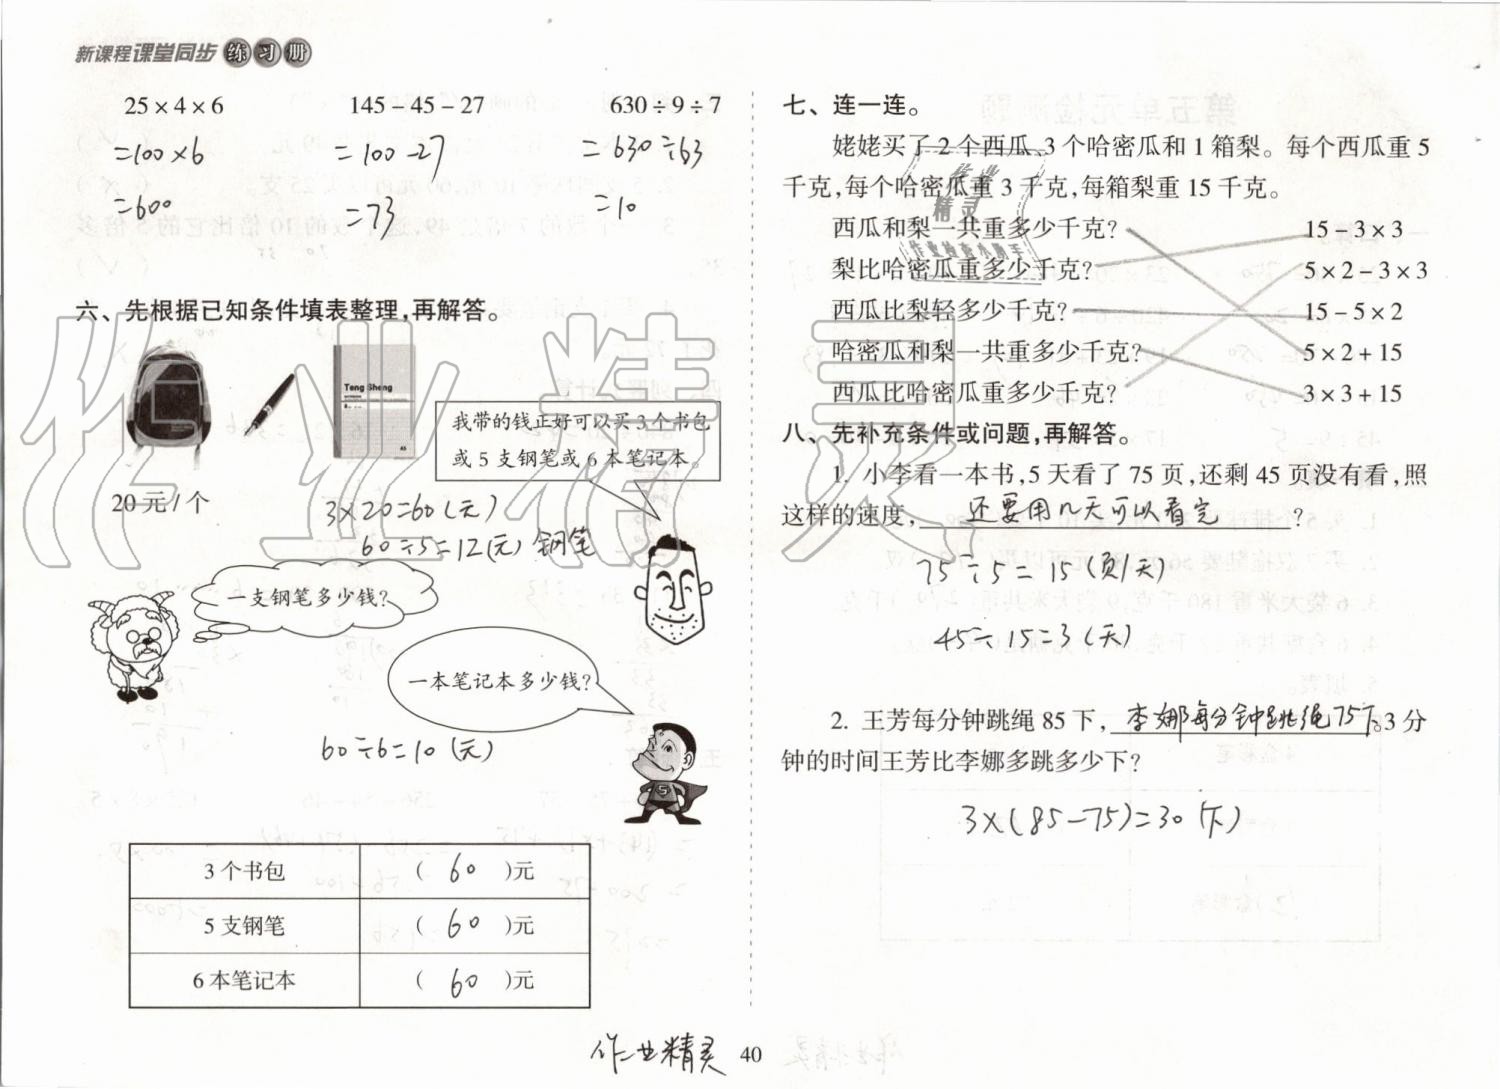 新课程课堂同步练习册
25×4×6 145-45-27 630÷9÷7
=100×6 =100-27 =630÷63
=600 =73 =10
六、先根据已知条件填表整理,再解答。
Teng Sheng
我带的钱正好可以买3个书包
或5支钢笔或6本笔记本。
20元/个
3×20=60(元)
60÷5=12(元) 钢笔
一支钢笔多少钱?
一本笔记本多少钱?
60÷6=10(元)
3个书包 (60)元
5支钢笔 (60)元
6本笔记本 (60)元
七、连一连。
姥姥买了2个西瓜、3个哈密瓜和1箱梨。每个西瓜重5
千克,每个哈密瓜重3千克,每箱梨重15千克。
西瓜和梨一共重多少千克? 15-3×3
梨比哈密瓜重多少千克? 5×2-3×3
西瓜比梨轻多少千克? 15-5×2
哈密瓜和梨一共重多少千克? 5×2+15
西瓜比哈密瓜重多少千克? 3×3+15
八、先补充条件或问题,再解答。
1. 小李看一本书,5天看了75页,还剩45页没有看,照
这样的速度,还要用几天可以看完?
75÷5=15(页/天)
45÷15=3(天)
2. 王芳每分钟跳绳85下,李娜每分钟跳绳75下。3分
钟的时间王芳比李娜多跳多少下?
3×(85-75)=30(下)
作业精灵
作业检查小助手
作业精灵
作业精灵 40